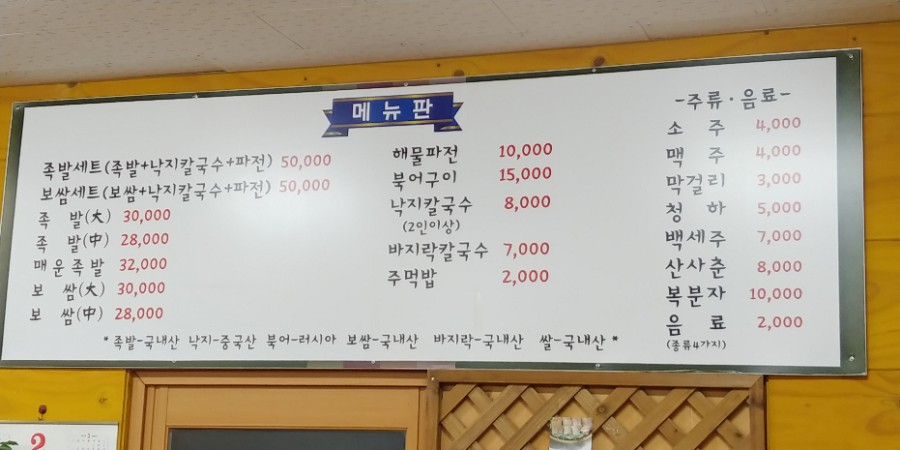 메뉴판
족발세트(족발+낙지칼국수+파전) 50,000
보쌈세트(보쌈+낙지칼국수+파전) 50,000
족 발(大) 30,000
족 발(中) 28,000
매운족발 32,000
보 쌈(大) 30,000
보 쌈(中) 28,000
해물파전 10,000
북어구이 15,000
낙지칼국수 8,000
(2인이상)
바지락칼국수 7,000
주먹밥 2,000
-주류·음료-
소 주 4,000
맥 주 4,000
막걸리 3,000
청 하 5,000
백세주 7,000
산사춘 8,000
복분자 10,000
음 료 2,000
(종류4가지)
*족발-국내산 낙지-중국산 북어-러시아 보쌈-국내산 바지락-국내산 쌀-국내산*
2